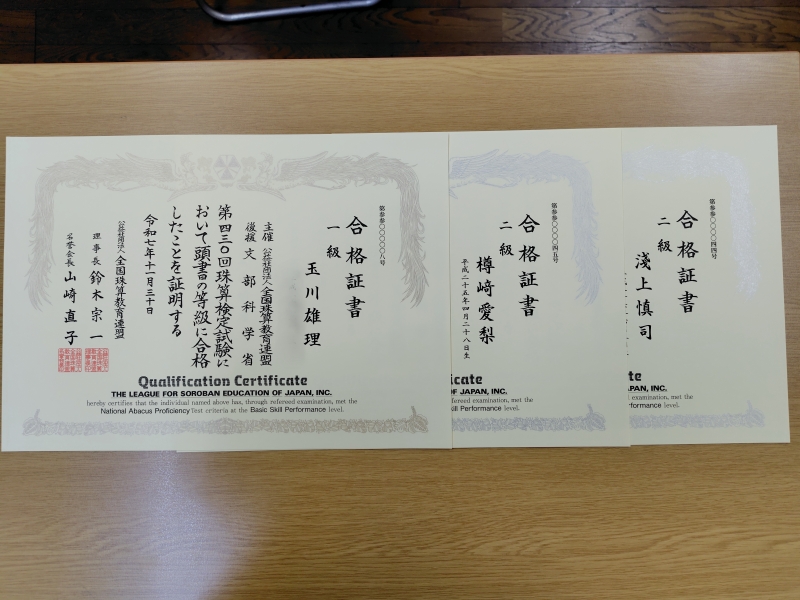 第参参〇〇〇〇〇八号
合格証書
一級
玉川雄理
主催 公益社団法人 全国珠算教育連盟
後援 文部科学省
第四三〇回珠算検定試験に
おいて頭書の等級に合格
したことを証明する
令和七年十一月三十日
公益社団法人 全国珠算教育連盟
理事長 鈴木宗一
名誉会長 山崎直子
Qualification Certificate
THE LEAGUE FOR SOROBAN EDUCATION OF JAPAN, INC.
hereby certifies that the individual named above has, through refereed examination, met the
National Abacus Proficiency Test criteria at the Basic Skill Performance level.
第参参〇〇〇〇四五号
合格証書
二級
樽﨑愛梨
平成二十五年四月二十八日生
te
F JAPAN, INC.
efereed examination, met the
kill Performance level.
第参参〇〇〇〇四四号
合格証書
二級
淺上慎司
te
F JAPAN, INC.
efereed examination, met the
ill Performance level.